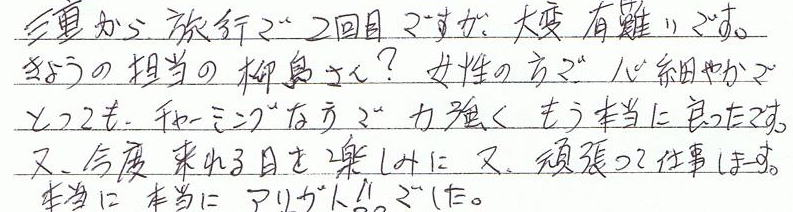 三重から旅行で2回目ですが、大変有難いです。
きょうの担当の柳島さん?女性の方で心細やかで
とっても、チャーミングな方で力強くもう本当に良ったです。
又、今度来れる日を楽しみに又、頑張って仕事します。
本当に本当にアリガト!!でした。